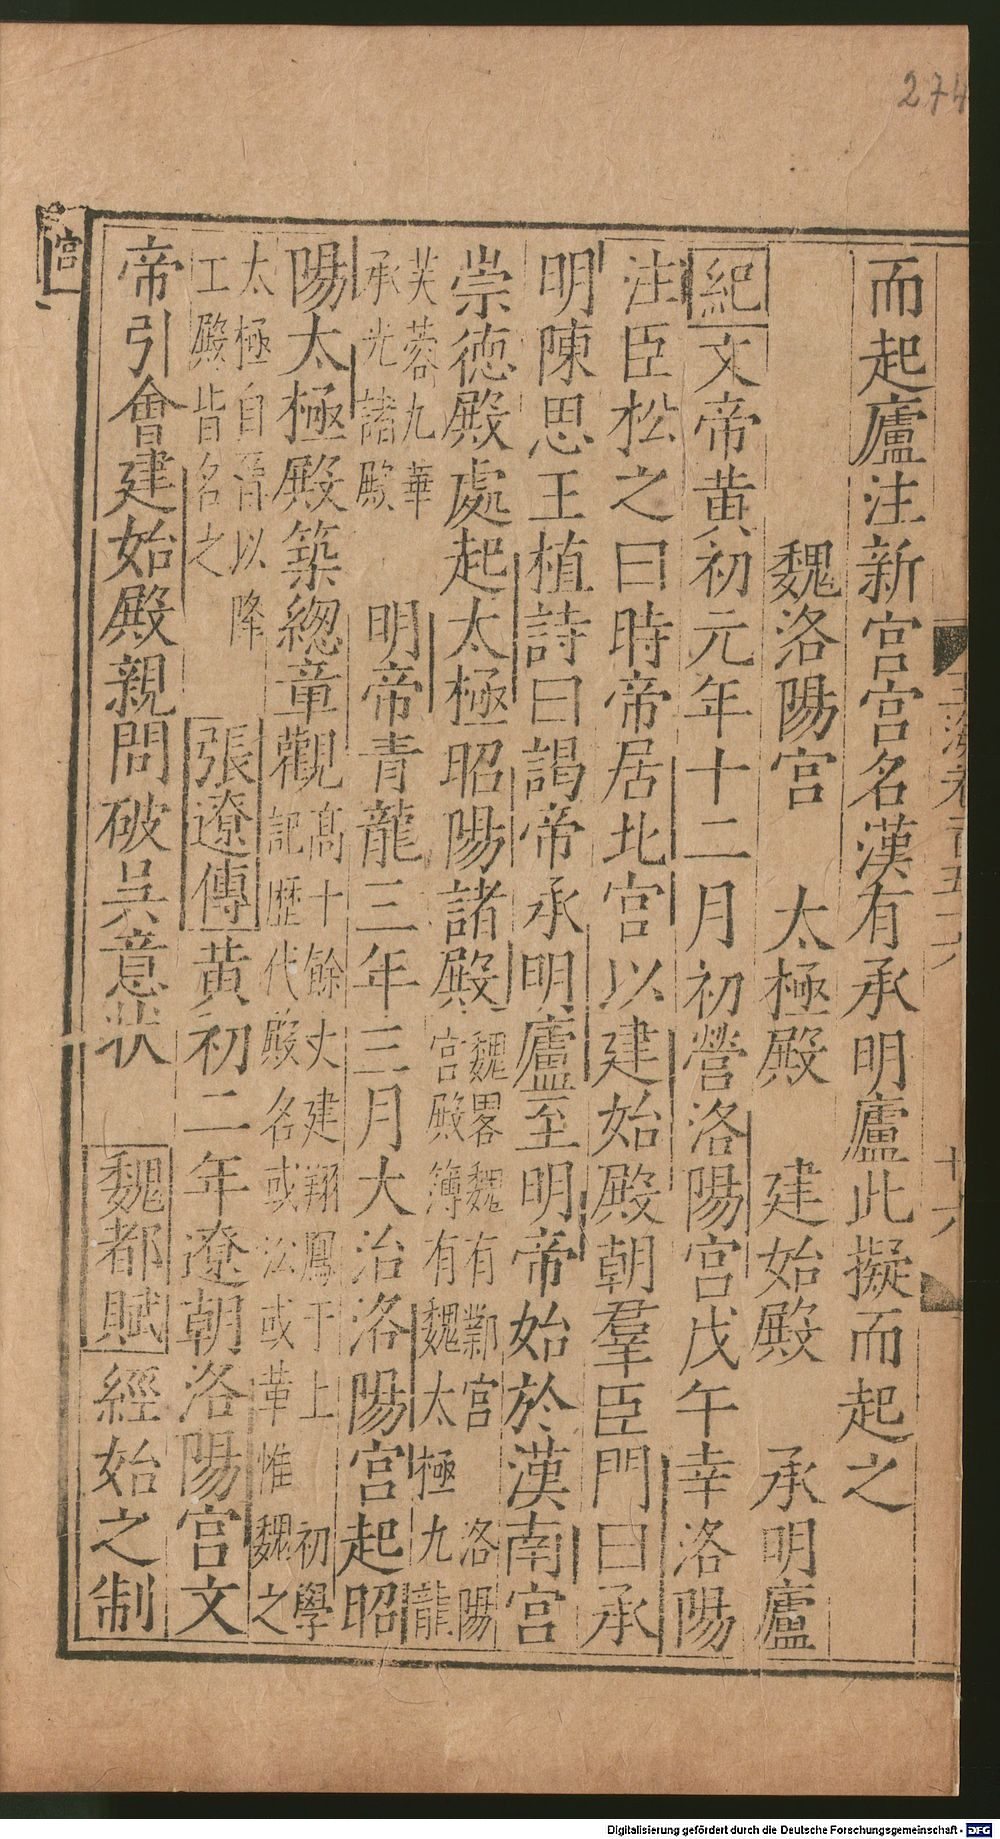 274
玉海卷百五十六
廿六
而起廬注新宮宮名漢有承明廬此擬而起之
魏洛陽宮 太極殿 建始殿 承明廬
紀文帝黄初元年十二月初營洛陽宮戊午幸洛陽
注臣松之曰時帝居北宮以建始殿朝羣臣門曰承
明陳思王植詩曰謁帝承明廬至明帝始於漢南宮
崇徳殿處起太極昭陽諸殿魏畧魏有鄴宮 洛陽
宮殿簿有魏太極九龍
芙蓉九華
承光諸殿 明帝青龍三年三月大治洛陽宮起昭
陽太極殿築緫章觀髙十餘丈建翔鳳于上 初學
記歴代殿名或沿或革惟魏之
太極自晉以降
正殿皆名之 張遼傳黄初二年遼朝洛陽宮文
帝引會建始殿親問破吳意狀 魏都賦經始之制
宮
Digitalisierung gefördert durch die Deutsche Forschungsgemeinschaft - DFG